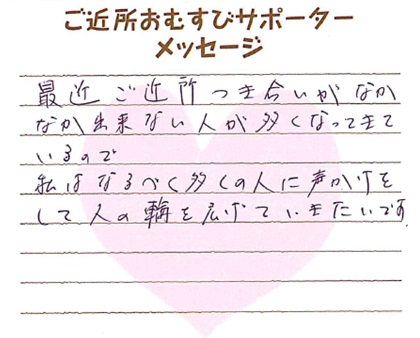 ご近所おむすびサポーター
メッセージ
最近ご近所つき合いがなか
なか出来ない人が多くなってきて
いるので
私はなるべく多くの人に声かけを
して人の輪を広げていきたいです